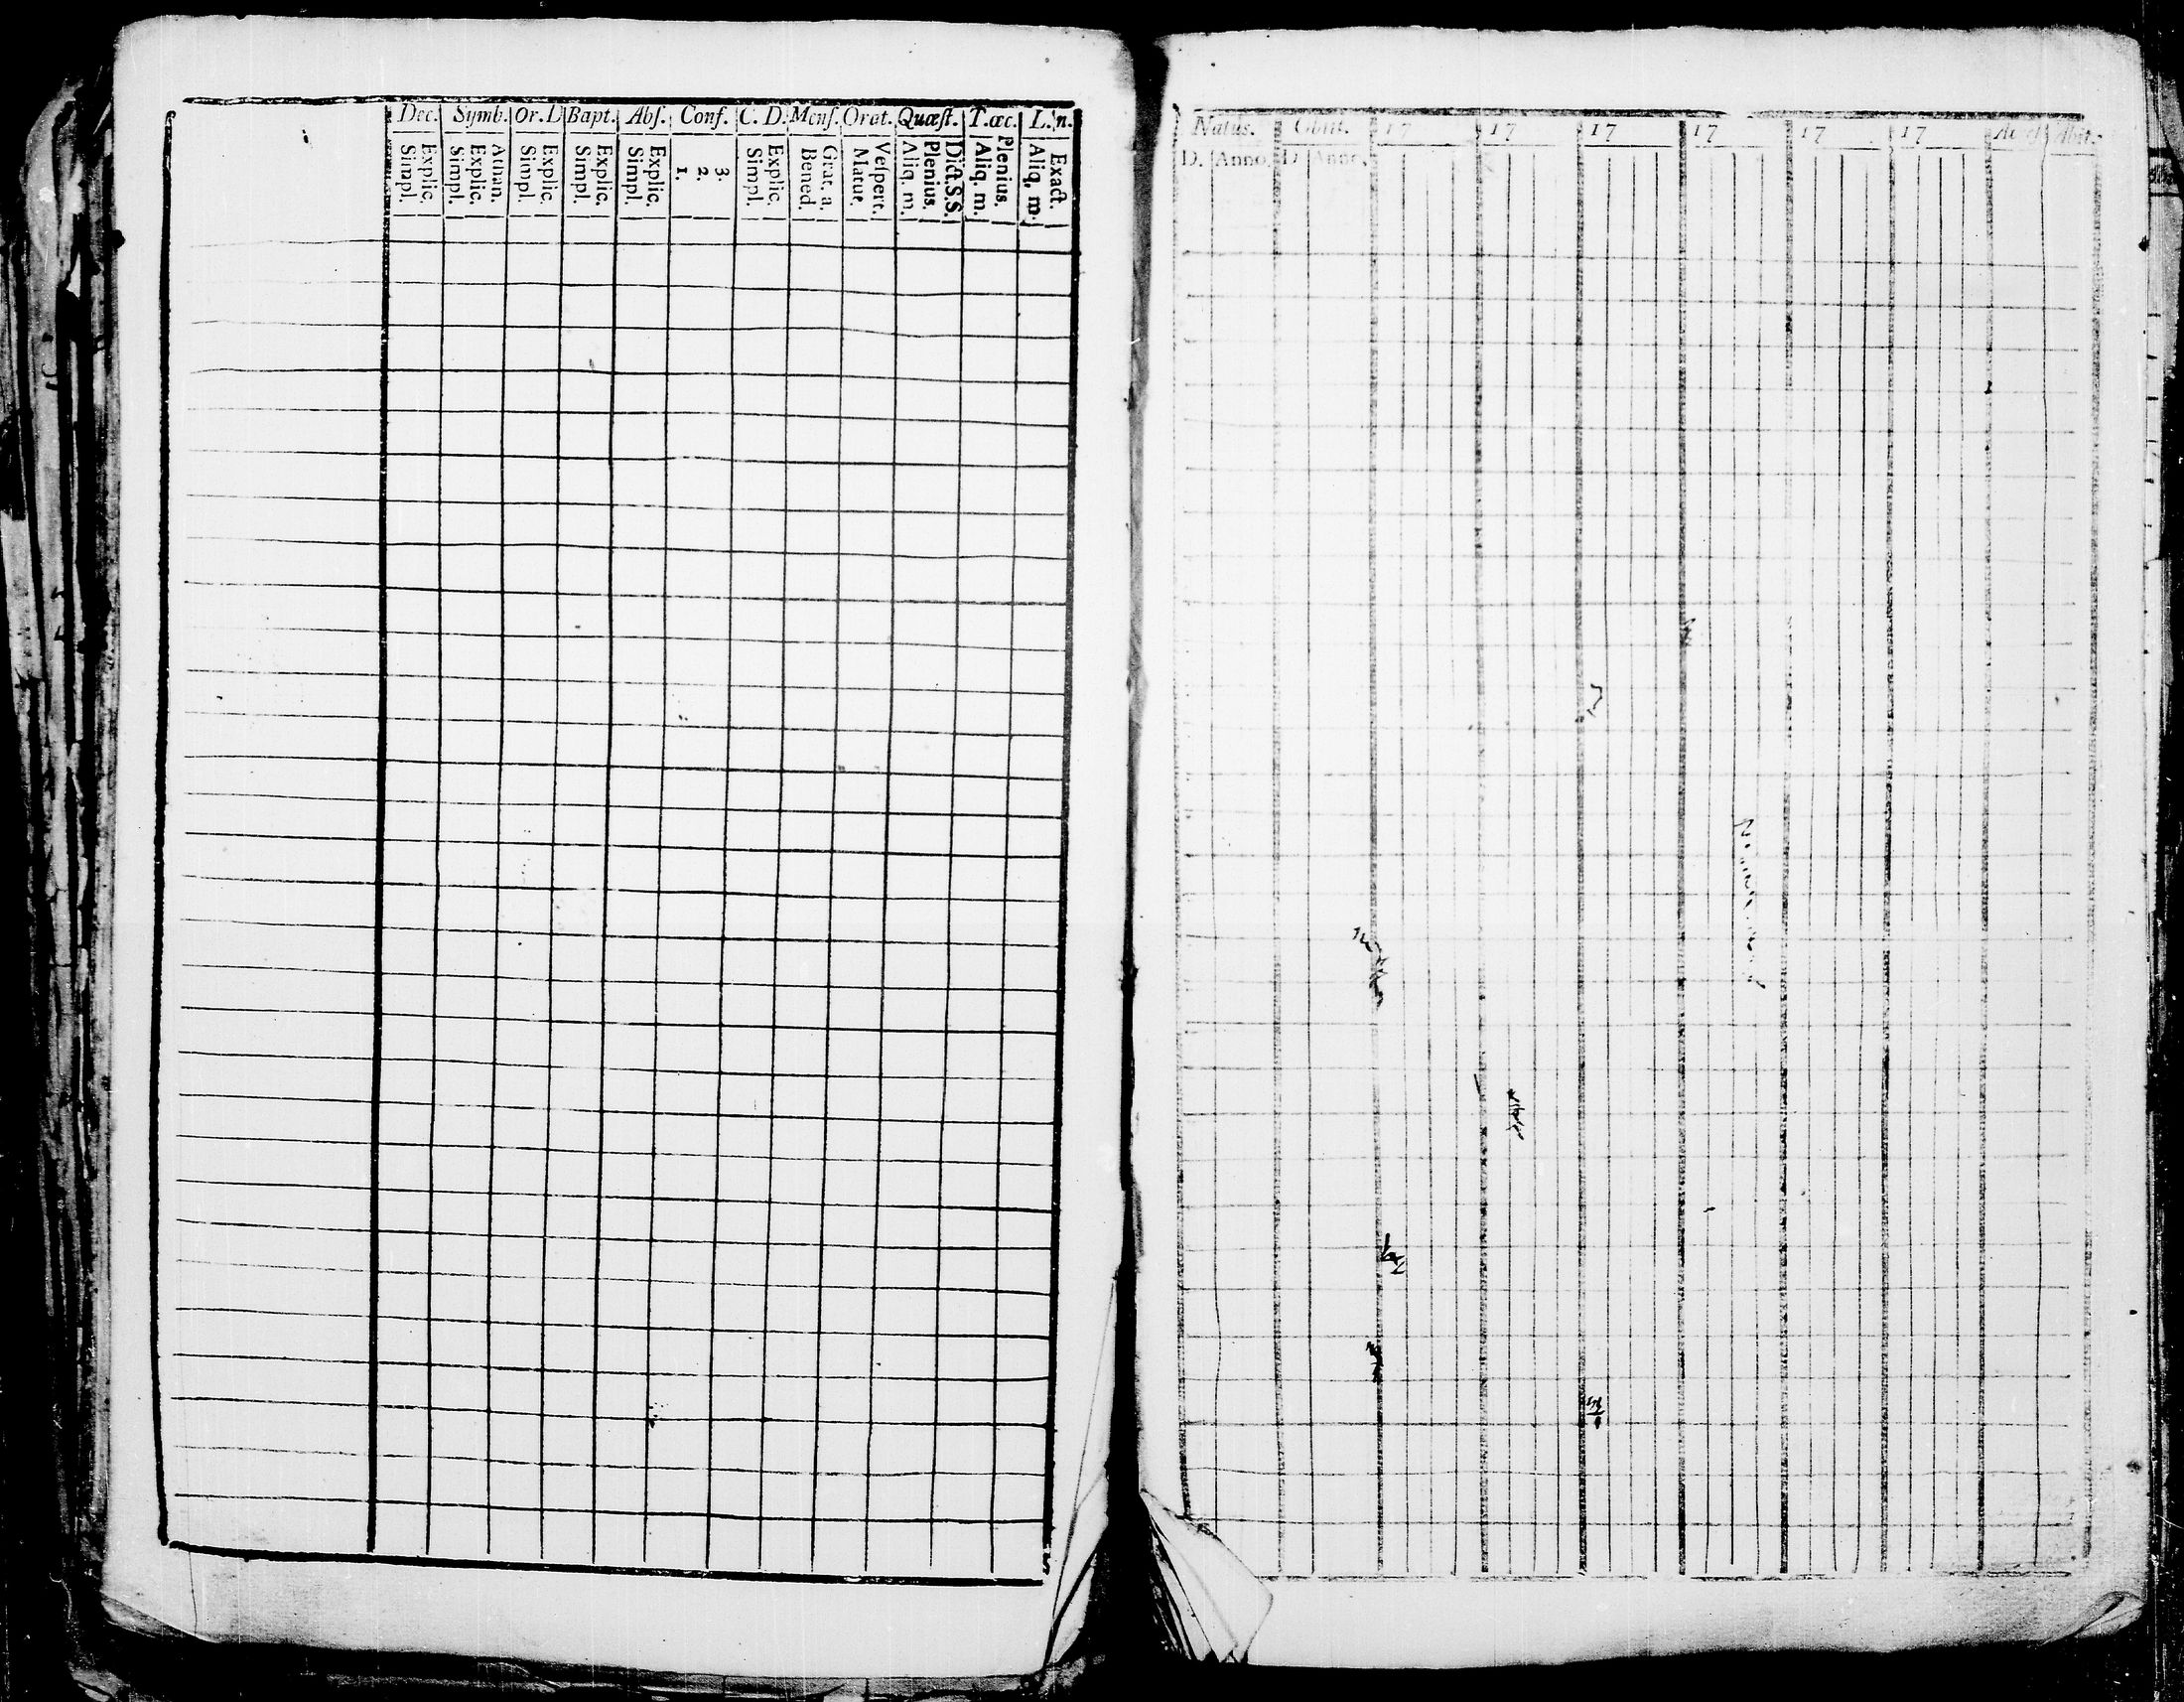 Dec. Symb. Or. D Bapt. Abſ. Conf. C. D. Menſ. Orat. Quæſt. T. œc. L. in.
Simpl. Explic. Simpl. Explic. Athan. Simpl. Explic. Simpl. Explic. Simpl. Explic. 1. 2. 3. Simpl. Explic. Bened. Grat. a. Matut. Veſpert. Aliq. m. Plenius. Dict. S. S. Aliq. m. Plenius. Aliq. m. Exact.
Natus. Obiit. 17 17 17 17 17 17 Acceſ. Abit.
D. Anno. D. Anno.